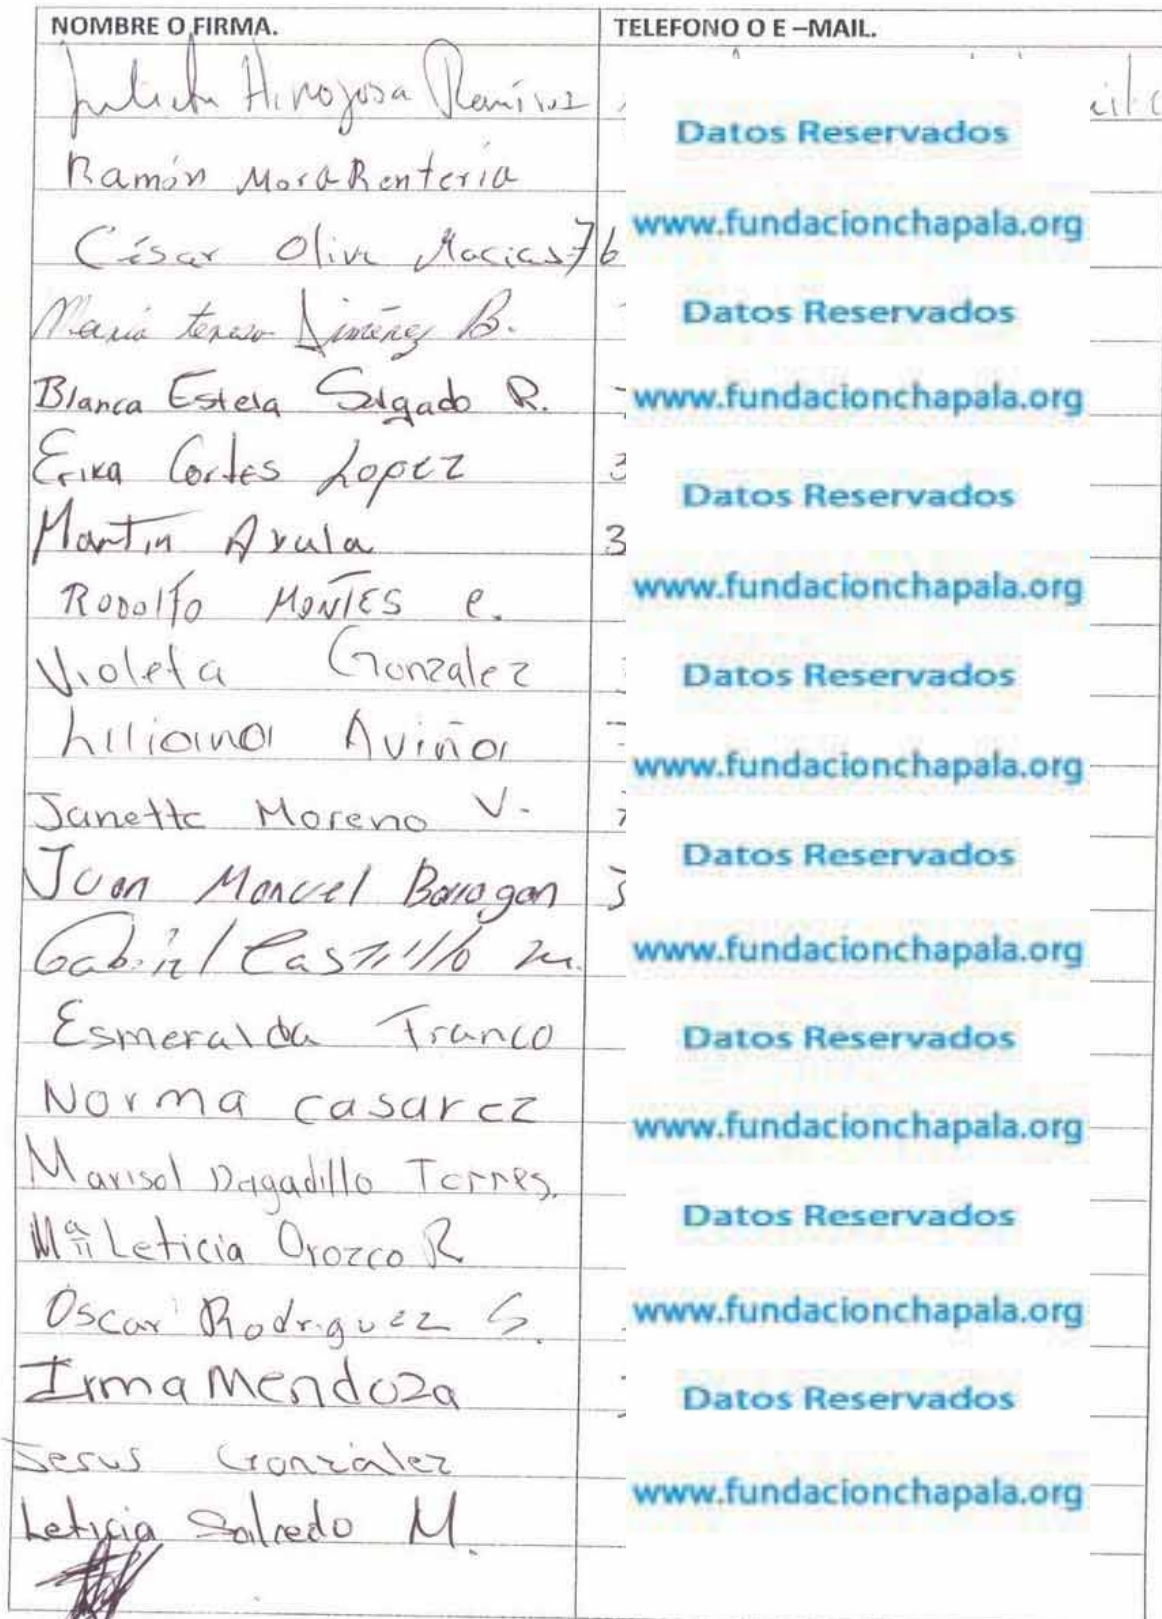 NOMBRE O FIRMA. TELEFONO O E –MAIL.
Julieta Hinojosa Ramírez
Datos Reservados
Ramón Mora Rentería
www.fundacionchapala.org
César Oliva Macias 76
Maria teresa Jiménez B. Datos Reservados
Blanca Estela Salgado R. www.fundacionchapala.org
Erika Cortes Lopez 3
Datos Reservados
Martin Ayala 3
Rodolfo MONTES e. www.fundacionchapala.org
Violeta Gonzalez Datos Reservados
Liliana Aviña
www.fundacionchapala.org
Janette Moreno V.
Datos Reservados
Juan Manuel Barragan 3
Gabriel Castillo m. www.fundacionchapala.org
Esmeralda Franco Datos Reservados
Norma casarez
www.fundacionchapala.org
Marisol Torres.
Datos Reservados
Mª Leticia Orozco R
Oscar Rodriguez S. www.fundacionchapala.org
Irma Mendoza Datos Reservados
Jesus González
www.fundacionchapala.org
Leticia Salcedo M.